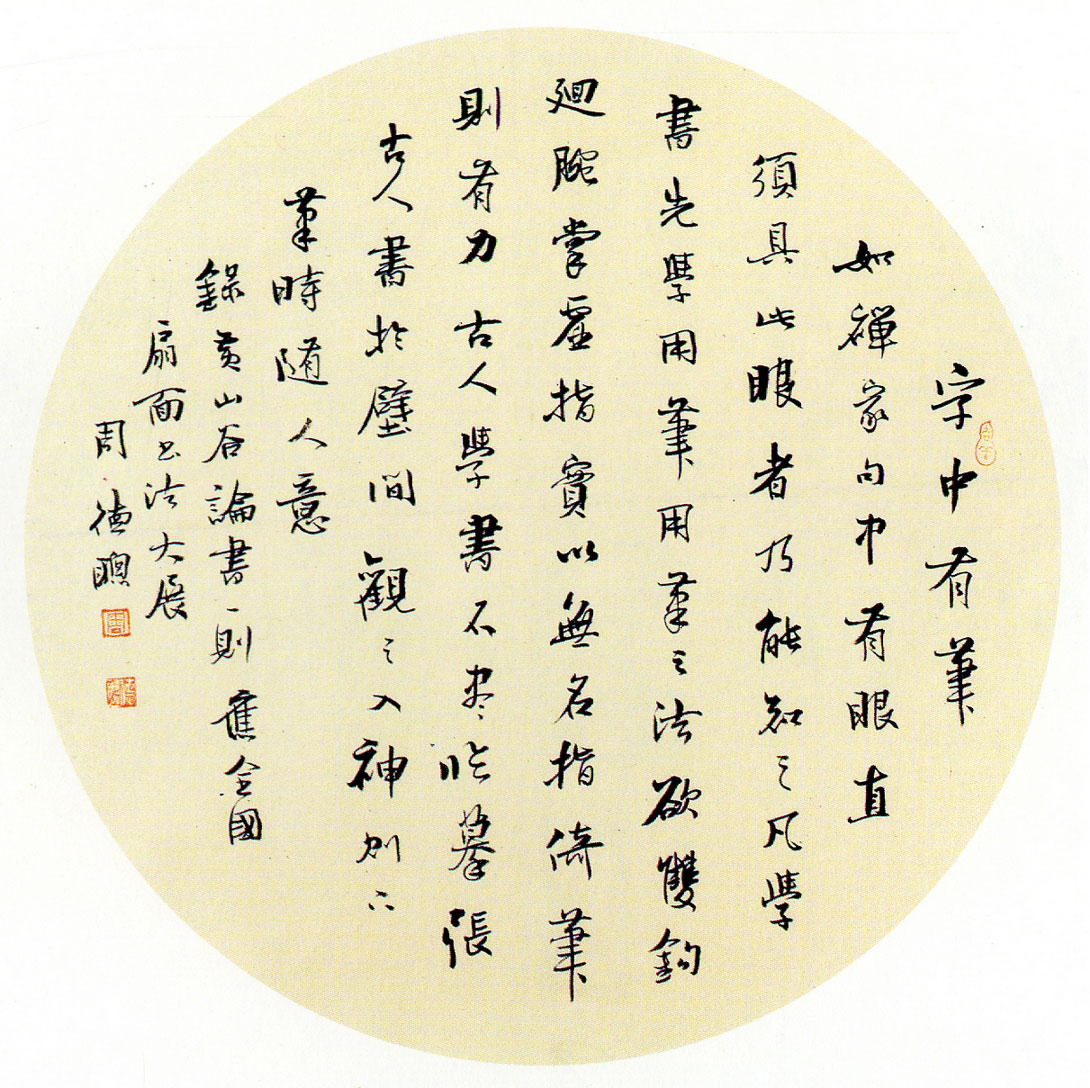 字中有筆
如禪家句中有眼直
須具此眼者乃能知之凡學
書先學用筆用筆之法欲雙鉤
廻腕掌虛指實以無名指倚筆
則有力古人學書不尽臨摹張
古人書於壁間觀之入神則下
筆時隨人意
錄黃山谷論書一則應全國
扇面书法大展
周德聰